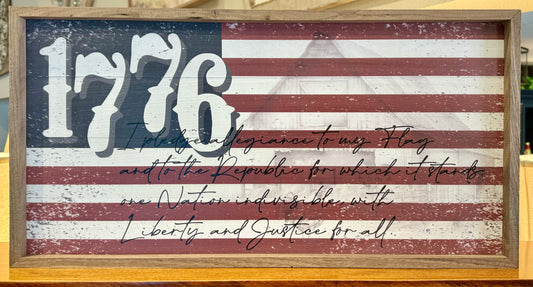 1776
I pledge allegiance to my Flag
and to the Republic for which it stands,
one Nation indivisible, with
Liberty and Justice for all.